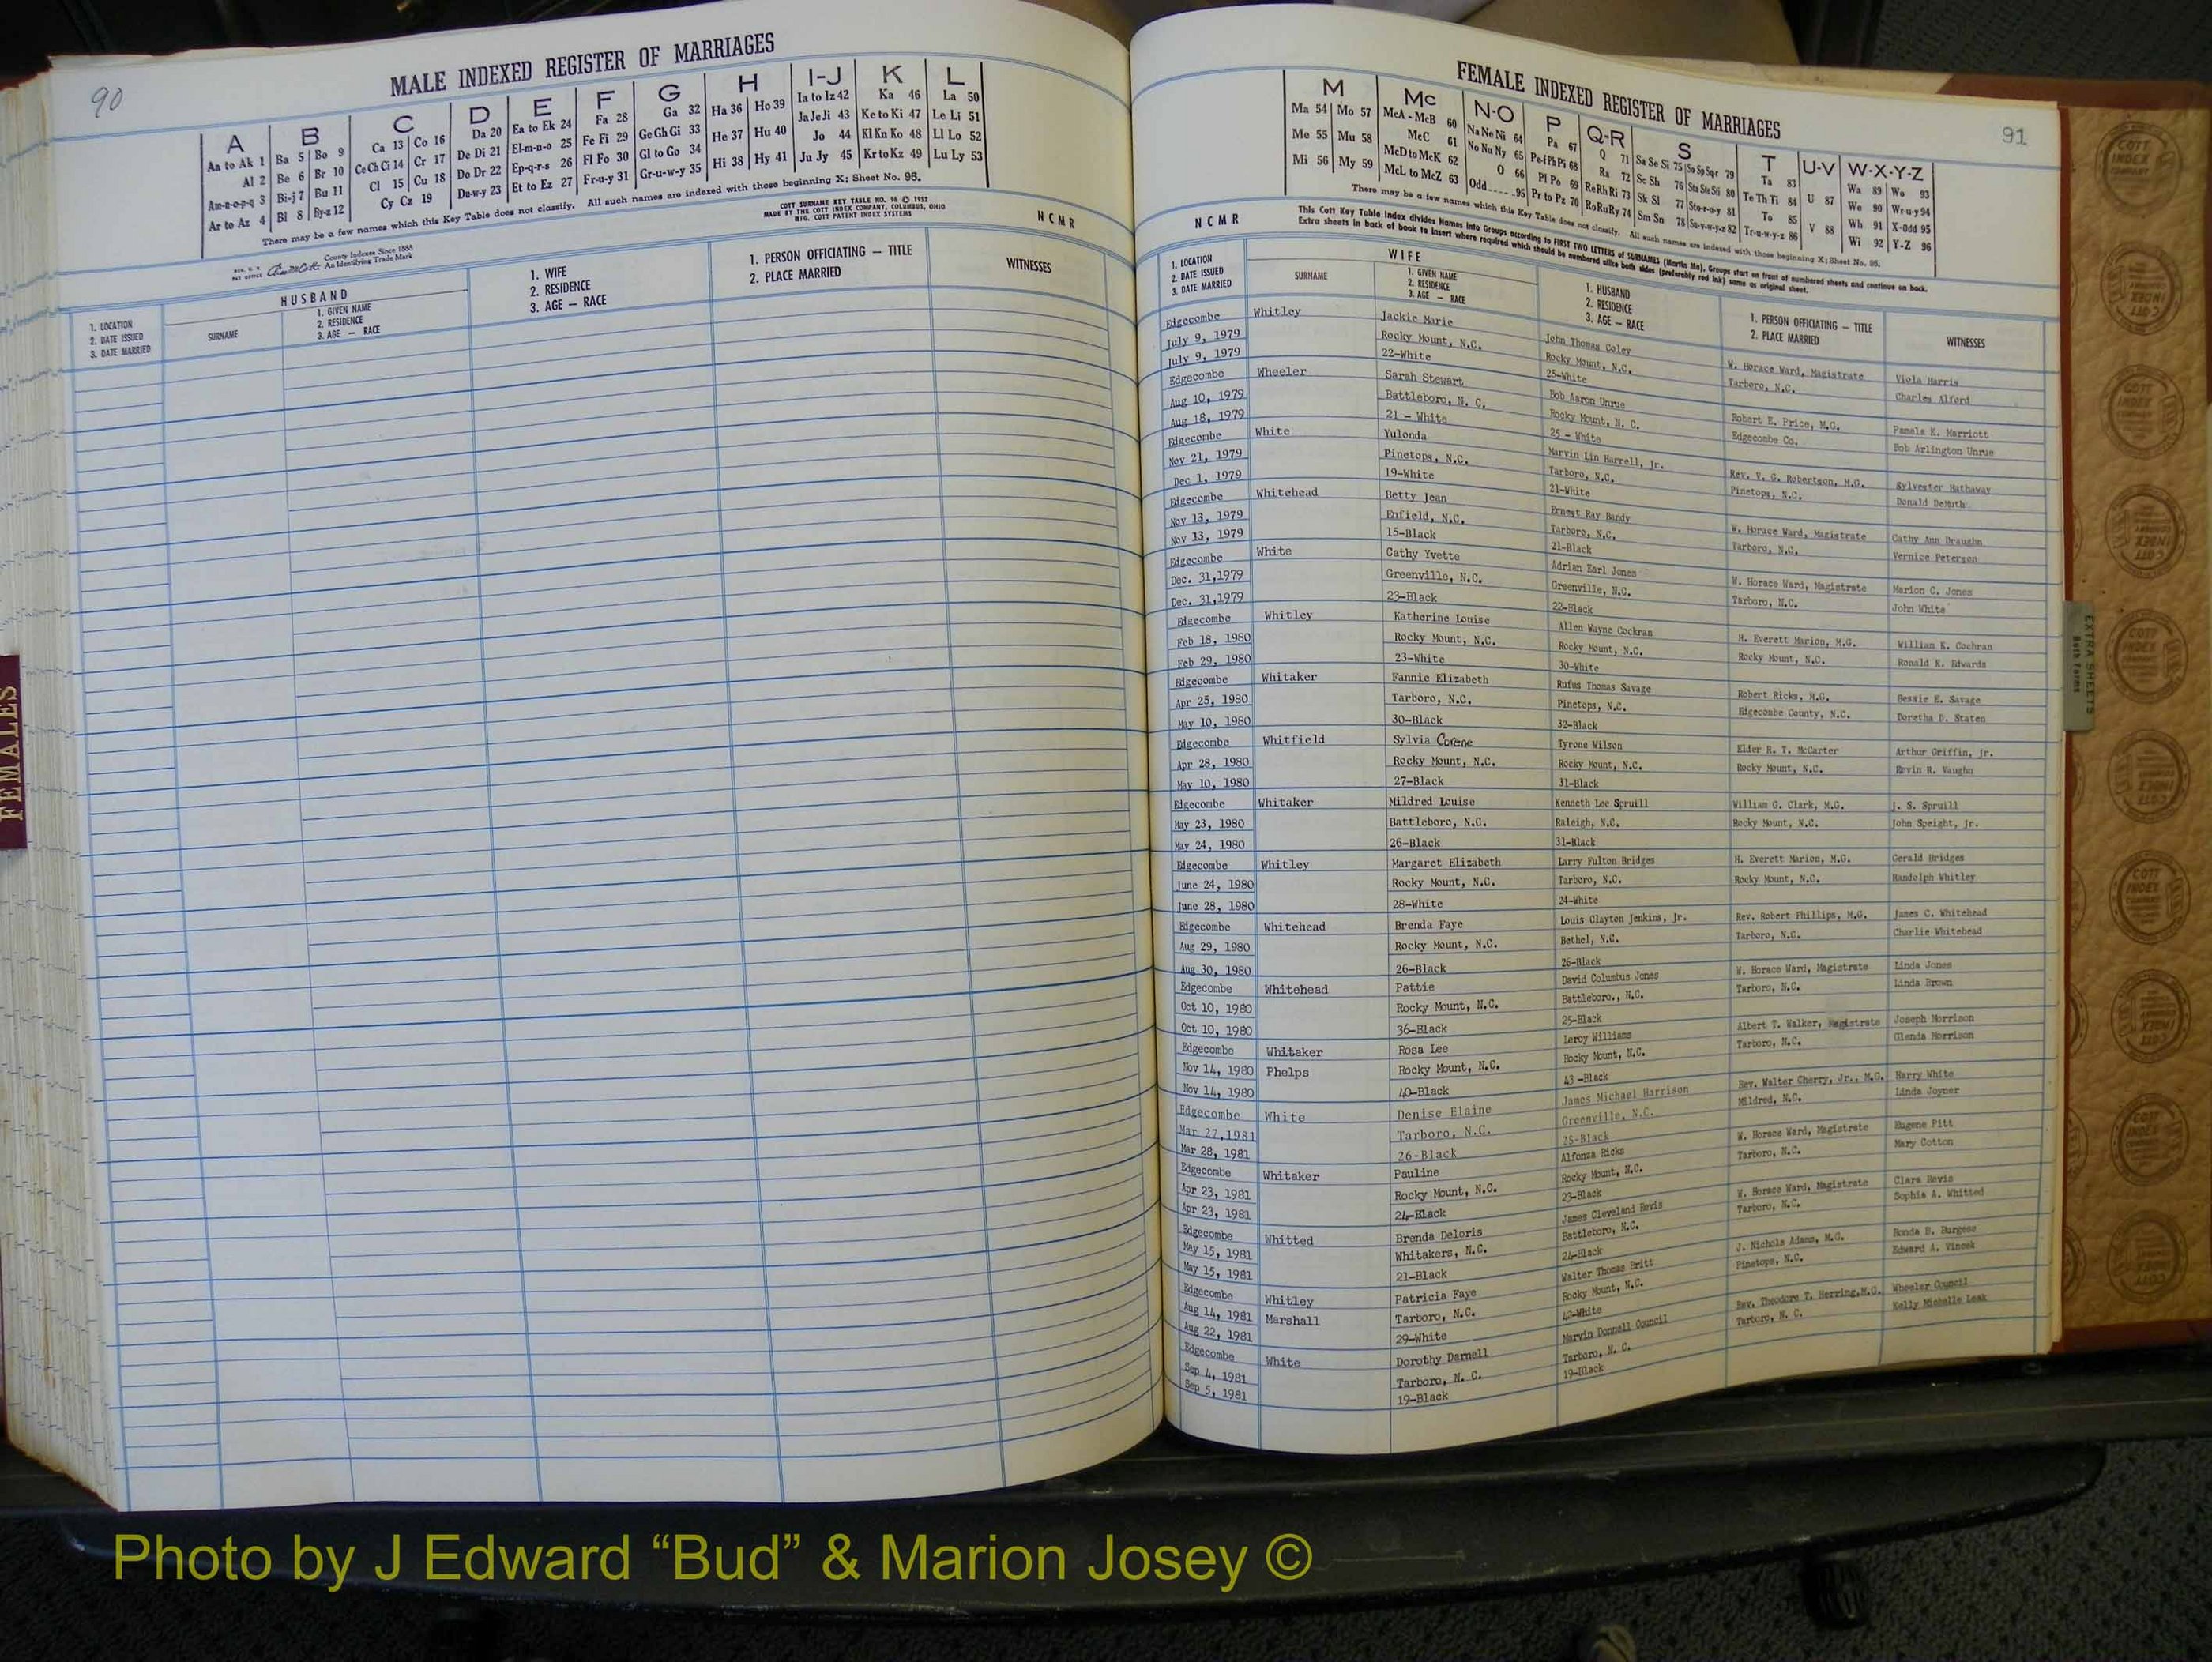 90
MALE INDEXED REGISTER OF MARRIAGES
A B C D E F G H I-J K L
Aa to Ak 1 Ba 5 Bo 9 Ca 13 Co 16 Da 20 Ea to Ek 24 Fa 28 Ga 32 Ha 36 Ho 39 Ia to Iz 42 Ka 46 La 50
Al 2 Be 6 Br 10 Ce Ch Ci 14 Cr 17 De Di 21 El-m-n-o 25 Fe Fi 29 Ge Gh Gi 33 He 37 Hu 40 Ja Je Ji 43 Ke to Ki 47 Le Li 51
Am-n-o-p-q 3 Bi-j 7 Bu 11 Cl 15 Cu 18 Do Dr 22 Ep-q-r-s 26 Fl Fo 30 Gl to Go 34 Hi 38 Hy 41 Jo 44 Kl Kn Ko 48 Ll Lo 52
Ar to Az 4 Bl 8 By-z 12 Cy Cz 19 Du-w-y 23 Et to Ez 27 Fr-u-y 31 Gr-u-w-y 35 Ju Jy 45 Kr to Kz 49 Lu Ly 53
There may be a few names which this Key Table does not classify. All such names are indexed with those beginning X; Sheet No. 95.
County Indexes Since 1888
An Identifying Trade Mark
COTT SURNAME KEY TABLE NO. 96 © 1952
MADE BY THE COTT INDEX COMPANY, COLUMBUS, OHIO
MFG. COTT PATENT INDEX SYSTEMS
NCMR
1. LOCATION
2. DATE ISSUED
3. DATE MARRIED
HUSBAND
SURNAME
1. GIVEN NAME
2. RESIDENCE
3. AGE — RACE
1. WIFE
2. RESIDENCE
3. AGE — RACE
1. PERSON OFFICIATING — TITLE
2. PLACE MARRIED
WITNESSES
FEMALES
FEMALE INDEXED REGISTER OF MARRIAGES
91
M Mc N-O P Q-R S T U-V W-X-Y-Z
Ma 54 Mo 57 McA - McB 60 Na Ne Ni 64 Pa 67 Q 71 Sa Se Si 75 So Sp Sq-r 79 Ta 83 U 87 Wa 89 Wo 93
Me 55 Mu 58 McC 61 No Nu Ny 65 Pe-f Ph Pi 68 Ra 72 Sc Sh 76 Sta Ste Sti 80 Te Th Ti 84 V 88 We 90 Wr-u-y 94
Mi 56 My 59 McD to McK 62 O 66 Pl Po 69 Re Rh Ri 73 Sk Sl 77 Sto-r-u-y 81 To 85 Wh 91 X-Odd 95
McL to McZ 63 Odd 95 Pr to Pz 70 Ro Ru Ry 74 Sm Sn 78 Su-v-w-y-z 82 Tr-u-w-y-z 86 Wi 92 Y-Z 96
There may be a few names which this Key Table does not classify. All such names are indexed with those beginning X; Sheet No. 95.
NCMR
This Cott Key Table Index divides Names into Groups according to FIRST TWO LETTERS of SURNAMES (Martin Ma). Groups start on front of numbered sheets and continue on back.
Extra sheets in back of book to insert where required which should be numbered alike both sides (preferably red ink) same as original sheet.
1. LOCATION
2. DATE ISSUED
3. DATE MARRIED
WIFE
SURNAME
1. GIVEN NAME
2. RESIDENCE
3. AGE — RACE
1. HUSBAND
2. RESIDENCE
3. AGE — RACE
1. PERSON OFFICIATING — TITLE
2. PLACE MARRIED
WITNESSES
Edgecombe Whitley Jackie Marie John Thomas Coley W. Horace Ward, Magistrate Viola Harris
July 9, 1979 Rocky Mount, N.C. Rocky Mount, N.C. Tarboro, N.C. Charles Alford
July 9, 1979 22-White 25-White
Edgecombe Wheeler Sarah Stewart Bob Aaron Unrue Robert E. Price, M.G. Pamela K. Marriott
Aug 10, 1979 Battleboro, N. C. Rocky Mount, N. C. Edgecombe Co. Bob Arlington Unrue
Aug 18, 1979 21 - White 25 - White
Edgecombe White Yulonda Marvin Lin Harrell, Jr. Rev. V. G. Robertson, M.G. Sylvester Hathaway
Nov 21, 1979 Pinetops, N.C. Tarboro, N.C. Pinetops, N.C. Donald DeMuth
Dec 1, 1979 19-White 21-White
Edgecombe Whitehead Betty Jean Ernest Ray Bandy W. Horace Ward, Magistrate Cathy Ann Draughn
Nov 13, 1979 Enfield, N.C. Tarboro, N.C. Tarboro, N.C. Vernice Peterson
Nov 13, 1979 15-Black 21-Black
Edgecombe White Cathy Yvette Adrian Earl Jones W. Horace Ward, Magistrate Marion C. Jones
Dec. 31,1979 Greenville, N.C. Greenville, N.C. Tarboro, N.C. John White
Dec. 31,1979 23-Black 22-Black
Edgecombe Whitley Katherine Louise Allen Wayne Cockran H. Everett Marion, M.G. Willian K. Cochran
Feb 18, 1980 Rocky Mount, N.C. Rocky Mount, N.C. Rocky Mount, N.C. Ronald K. Edwards
Feb 29, 1980 23-White 30-White
Edgecombe Whitaker Fannie Elizabeth Rufus Thomas Savage Robert Ricks, M.G. Bessie E. Savage
Apr 25, 1980 Tarboro, N.C. Pinetops, N.C. Edgecombe County, N.C. Doretha D. Staten
May 10, 1980 30-Black 32-Black
Edgecombe Whitfield Sylvia Corene Tyrone Wilson Elder R. T. McCarter Arthur Griffin, Jr.
Apr 28, 1980 Rocky Mount, N.C. Rocky Mount, N.C. Rocky Mount, N.C. Ervin R. Vaughn
May 10, 1980 27-Black 31-Black
Edgecombe Whitaker Mildred Louise Kenneth Lee Spruill William G. Clark, M.G. J. S. Spruill
May 23, 1980 Battleboro, N.C. Raleigh, N.C. Rocky Mount, N.C. John Speight, Jr.
May 24, 1980 26-Black 31-Black
Edgecombe Whitley Margaret Elizabeth Larry Fulton Bridges H. Everett Marion, M.G. Gerald Bridges
June 24, 1980 Rocky Mount, N.C. Tarboro, N.C. Rocky Mount, N.C. Randolph Whitley
June 28, 1980 28-White 24-White
Edgecombe Whitehead Brenda Faye Louis Clayton Jenkins, Jr. Rev. Robert Phillips, M.G. James C. Whitehead
Aug 29, 1980 Rocky Mount, N.C. Bethel, N.C. Tarboro, N.C. Charlie Whitehead
Aug 30, 1980 26-Black 26-Black
Edgecombe Whitehead Pattie David Columbus Jones W. Horace Ward, Magistrate Linda Jones
Oct 10, 1980 Rocky Mount, N.C. Battleboro., N.C. Tarboro, N.C. Linda Brown
Oct 10, 1980 36-Black 25-Black
Edgecombe Whitaker Rosa Lee Leroy Williams Albert T. Walker, Magistrate Joseph Morrison
Nov 14, 1980 Phelps Rocky Mount, N.C. Rocky Mount, N.C. Tarboro, N.C. Glenda Morrison
Nov 14, 1980 40-Black 43 -Black
Edgecombe White Denise Elaine James Michael Harrison Rev. Walter Cherry, Jr., M.G. Harry White
Mar 27,1981 Tarboro, N.C. Greenville, N.C. Mildred, N.C. Linda Joyner
Mar 28, 1981 26-Black 25-Black
Edgecombe Whitaker Pauline Alfonza Ricks W. Horace Ward, Magistrate Eugene Pitt
Apr 23, 1981 Rocky Mount, N.C. Rocky Mount, N.C. Tarboro, N.C. Mary Cotton
Apr 23, 1981 24-Black 23-Black
Edgecombe Whitted Brenda Deloris James Cleveland Bevis W. Horace Ward, Magistrate Clara Bevis
May 15, 1981 Whitakers, N.C. Battleboro, N.C. Tarboro, N.C. Sophia A. Whitted
May 15, 1981 21-Black 24-Black
Edgecombe Whitley Patricia Faye Walter Thomas Britt J. Nichols Adams, M.G. Ronda B. Burgess
Aug 14, 1981 Marshall Tarboro, N.C. Rocky Mount, N.C. Pinetops, N.C. Edward A. Vincek
Aug 22, 1981 29-White 42-White
Edgecombe White Dorothy Darnell Marvin Donnell Council Rev. Theodore T. Herring,M.G. Wheeler Council
Sep 4, 1981 Tarboro, N. C. Tarboro, N. C. Tarboro, N. C. Kelly Michelle Leak
Sep 5, 1981 19-Black 19-Black
EXTRA SHEETS
Both Forms
COTT INDEX COMPANY
Photo by J Edward “Bud” & Marion Josey ©